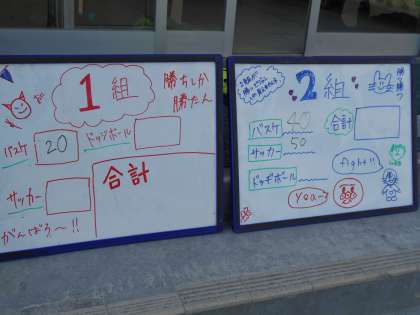 1組
勝ちしか
勝たん
バスケ 20
ドッジボール
サッカー
合計
がんばろ〜!!
2組
勝つ
バスケ 40
合計
サッカー 50
fight!!
ドッチボール